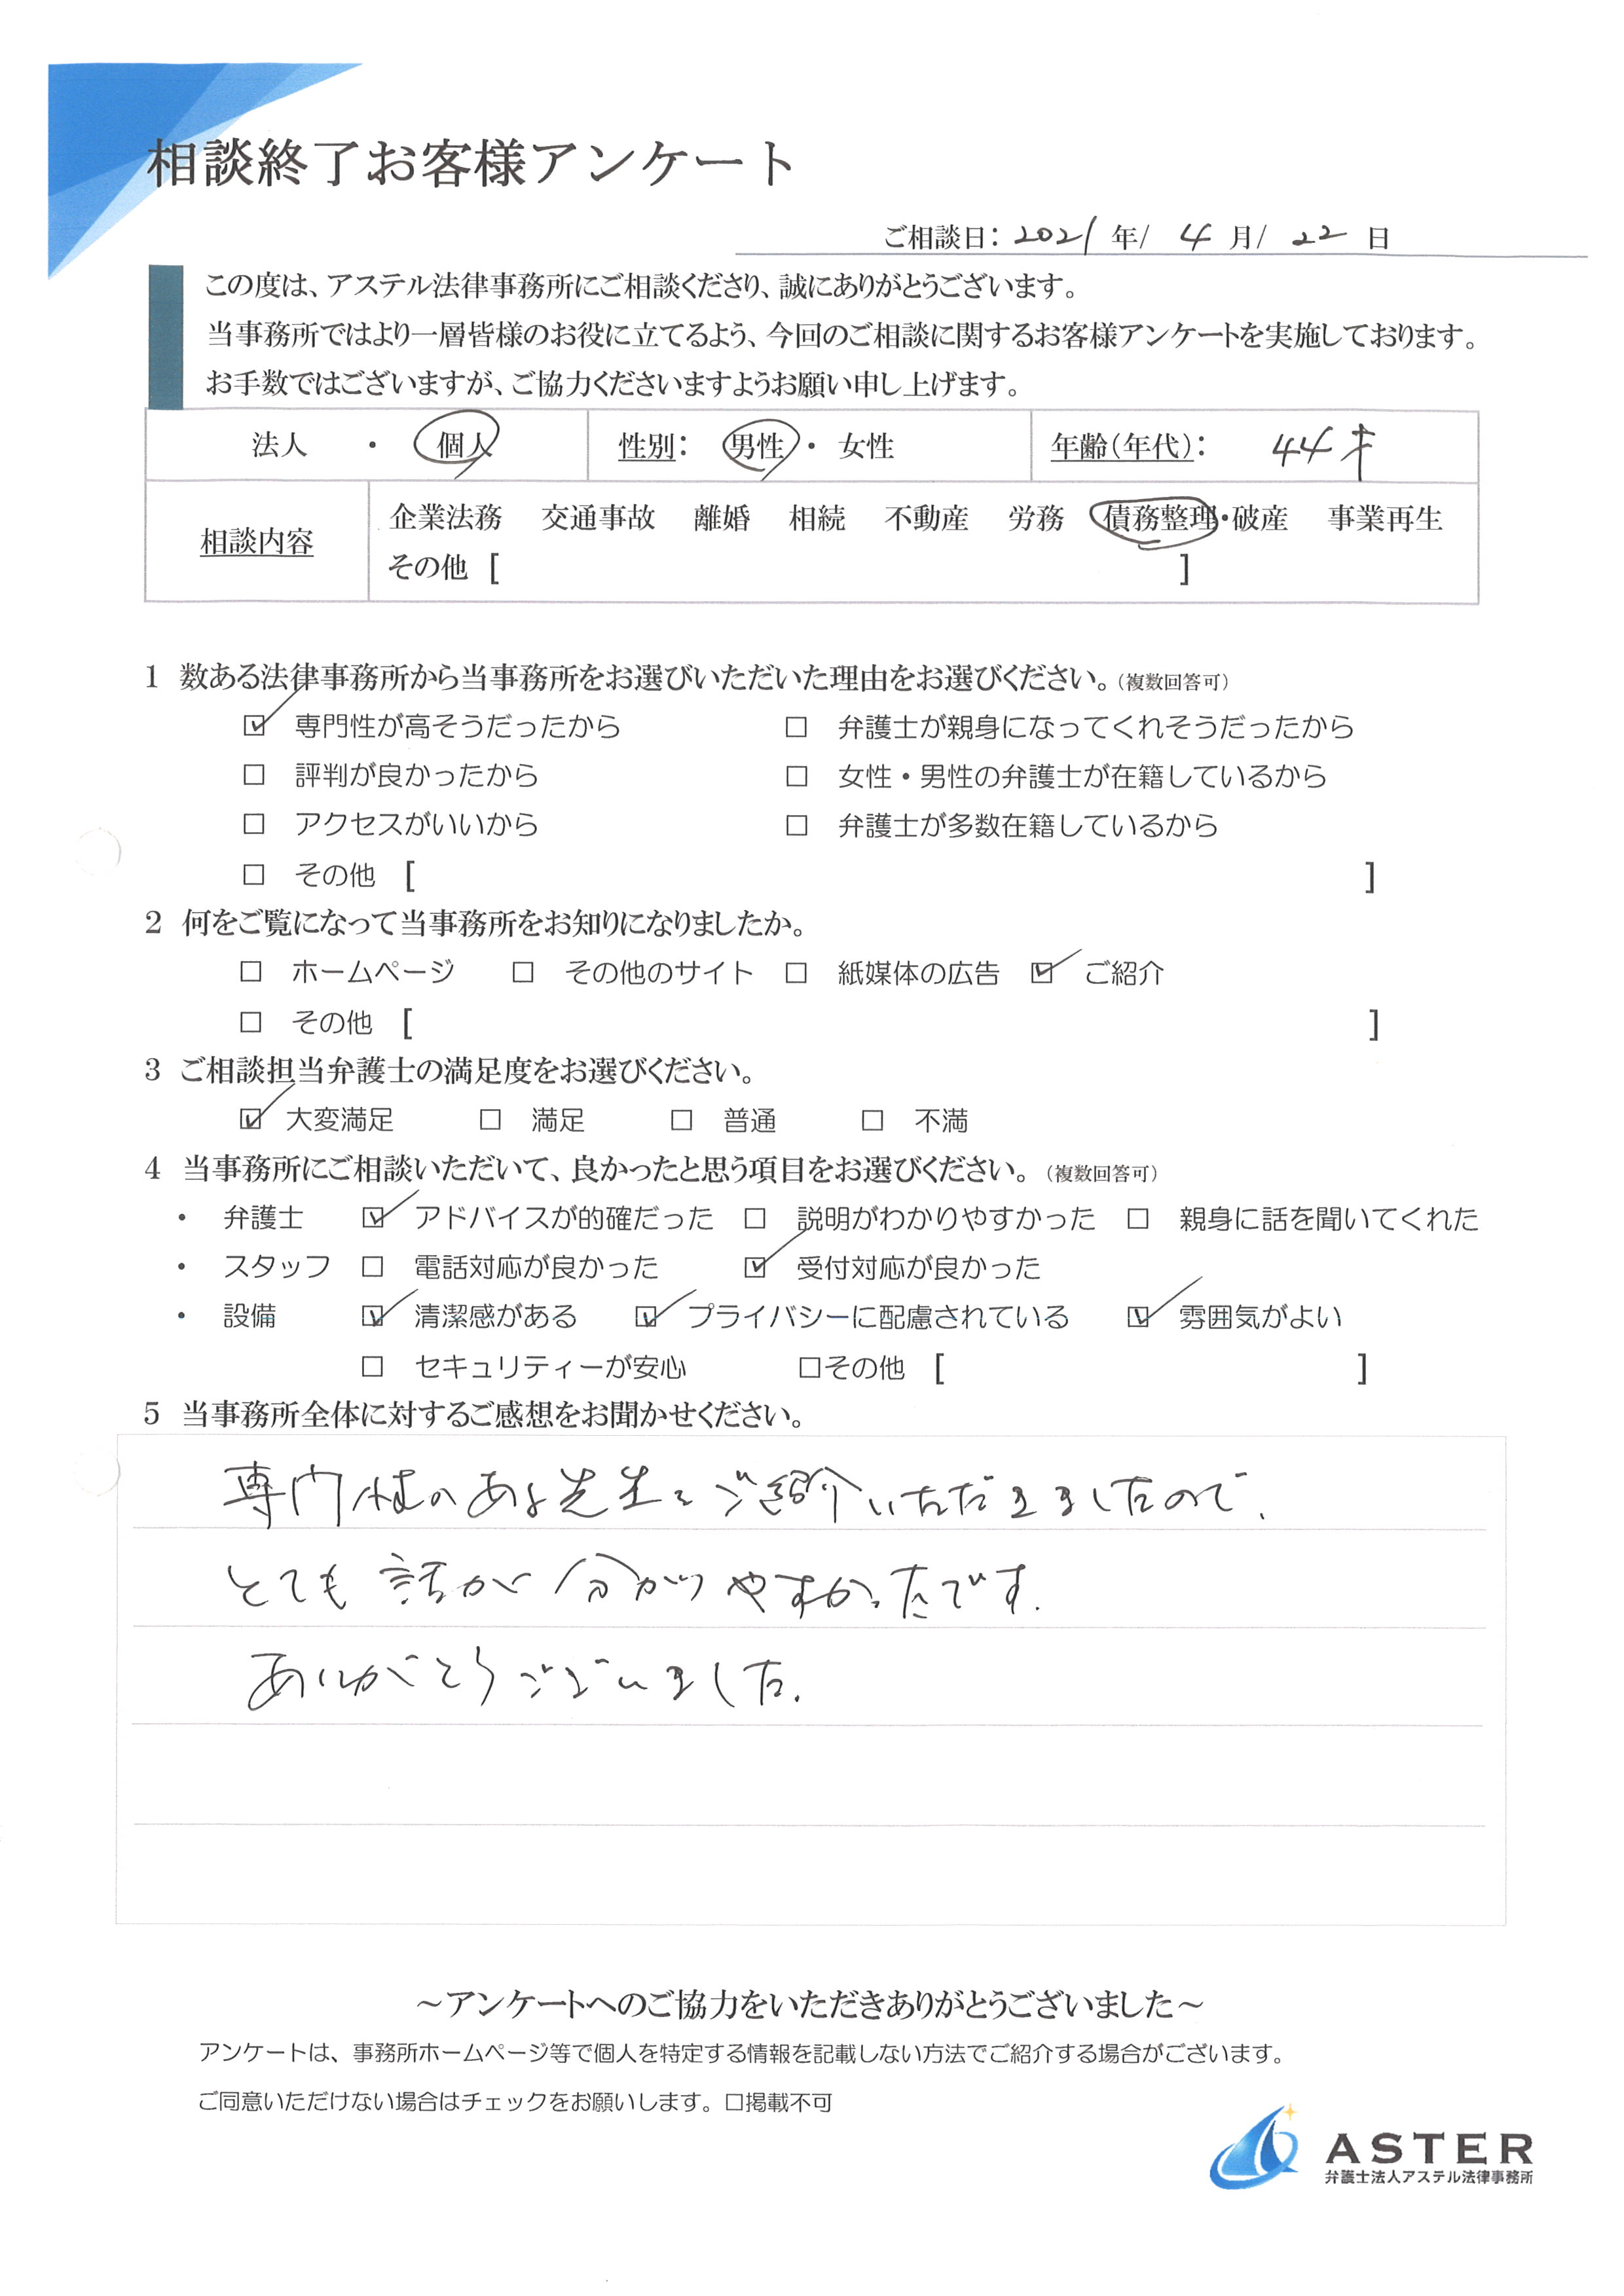 相談終了お客様アンケート
ご相談日：2021年/ 4月/ 22日
この度は、アステル法律事務所にご相談くださり、誠にありがとうございます。
当事務所ではより一層皆様のお役に立てるよう、今回のご相談に関するお客様アンケートを実施しております。
お手数ではございますが、ご協力くださいますようお願い申し上げます。
法人 ・ 個人 性別： 男性 ・ 女性 年齢（年代）： 44才
相談内容 企業法務 交通事故 離婚 相続 不動産 労務 債務整理・破産 事業再生
その他 [ ]
1 数ある法律事務所から当事務所をお選びいただいた理由をお選びください。（複数回答可）
☑ 専門性が高そうだったから □ 弁護士が親身になってくれそうだったから
□ 評判が良かったから □ 女性・男性の弁護士が在籍しているから
□ アクセスがいいから □ 弁護士が多数在籍しているから
□ その他 [ ]
2 何をご覧になって当事務所をお知りになりましたか。
□ ホームページ □ その他のサイト □ 紙媒体の広告 ☑ ご紹介
□ その他 [ ]
3 ご相談担当弁護士の満足度をお選びください。
☑ 大変満足 □ 満足 □ 普通 □ 不満
4 当事務所にご相談いただいて、良かったと思う項目をお選びください。（複数回答可）
・ 弁護士 ☑ アドバイスが的確だった □ 説明がわかりやすかった □ 親身に話を聞いてくれた
・ スタッフ □ 電話対応が良かった ☑ 受付対応が良かった
・ 設備 ☑ 清潔感がある ☑ プライバシーに配慮されている ☑ 雰囲気がよい
□ セキュリティーが安心 □その他 [ ]
5 当事務所全体に対するご感想をお聞かせください。
専門性のある先生をご紹介いただきましたので、
とても話が分かりやすかったです。
ありがとうございました。
～アンケートへのご協力をいただきありがとうございました～
アンケートは、事務所ホームページ等で個人を特定する情報を記載しない方法でご紹介する場合がございます。
ご同意いただけない場合はチェックをお願いします。□掲載不可
ASTER
弁護士法人アステル法律事務所